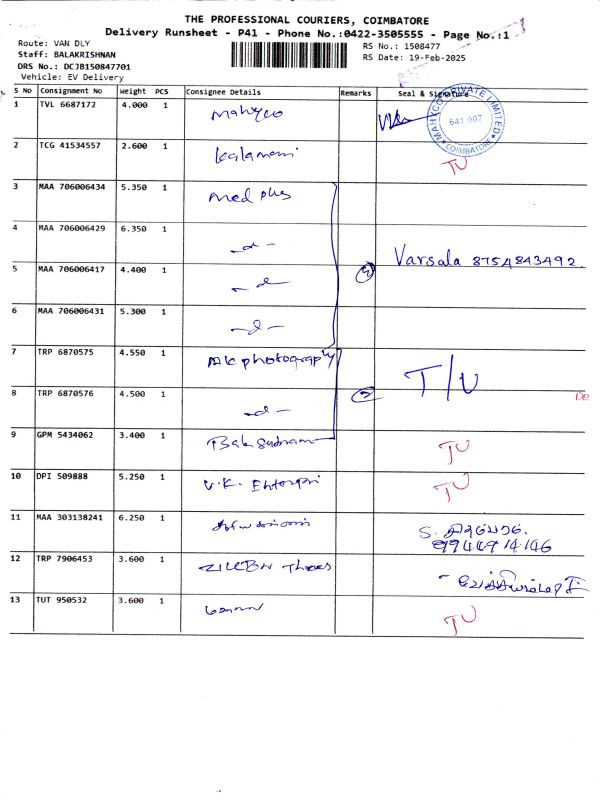 THE PROFESSIONAL COURIERS, COIMBATORE
Delivery Runsheet - P41 - Phone No.:0422-3505555 - Page No.:1
Route: VAN DLY
RS No.: 1508477
Staff: BALAKRISHNAN
RS Date: 19-Feb-2025
DRS No.: DCJB150847701
Vehicle: EV Delivery
S No Consignment No Weight PCS Consignee Details Remarks Seal & Signature
1 TVL 6687172 4.000 1 Mahyco
MAHYCO PRIVATE LIMITED
641 007
COIMBATORE
2 TCG 41534557 2.600 1 Kalamani TU
3 MAA 706006434 5.350 1 Med plus
4 MAA 706006429 6.350 1 -d-
4 Varsala 8754843492
5 MAA 706006417 4.400 1 -d-
6 MAA 706006431 5.300 1 -d-
7 TRP 6870575 4.550 1 AK photography
2 T/U
8 TRP 6870576 4.500 1 -d-
9 GPM 5434062 3.400 1 TU
10 DPI 509888 5.250 1 V.K. TU
11 MAA 303138241 6.250 1 S.
12 TRP 7906453 3.600 1
13 TUT 950532 3.600 1 TU